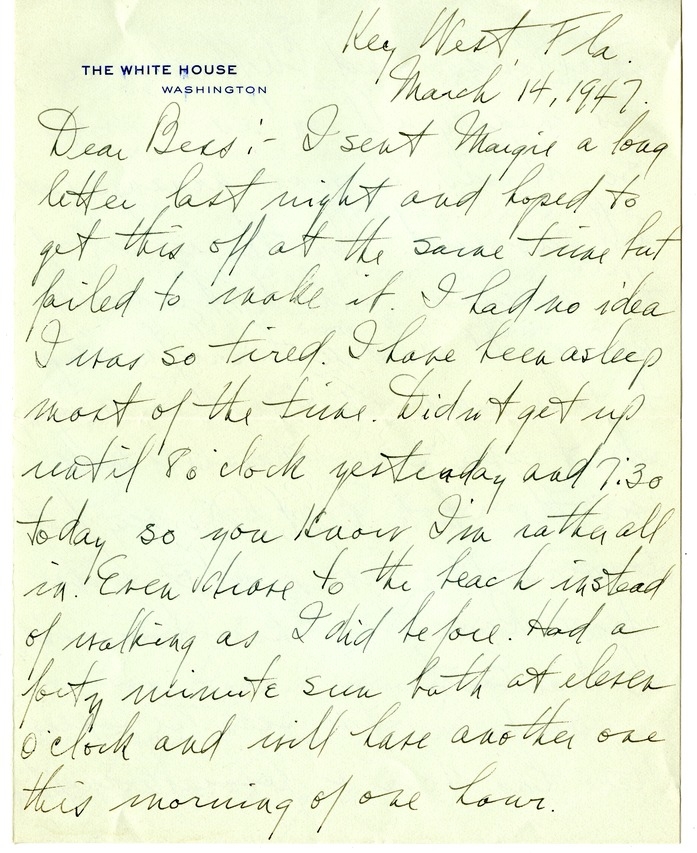 Key West, Fla.
THE WHITE HOUSE
WASHINGTON
March 14, 1947.
Dear Bess:- I sent Margie a long
letter last night and hoped to
get this off at the same time but
failed to make it. I had no idea
I was so tired. I have been asleep
most of the time. Didn't get up
until 8 o'clock yesterday and 7:30
today so you know I'm rather all
in. Even drove to the beach instead
of walking as I did before. Had a
forty minute sun bath at eleven
o'clock and will have another one
this morning of one hour.